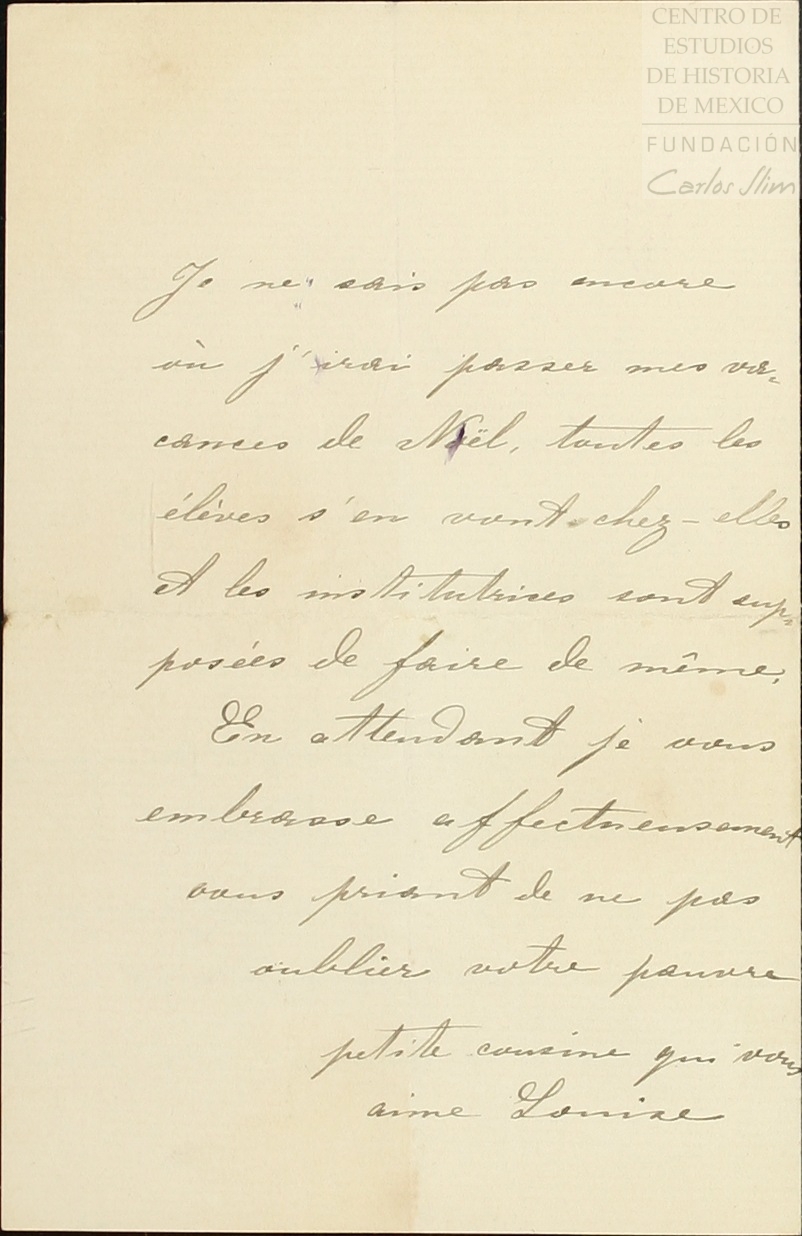 CENTRO DE
ESTUDIOS
DE HISTORIA
DE MEXICO
FUNDACIÓN
Carlos Slim
Je ne sais pas encore
où j'irai passer mes va-
cances de Noël, toutes les
élèves s'en vont chez-elles
et les institutrices sont sup-
posées de faire de même.
En attendant je vous
embrasse affectueusement
vous priant de ne pas
oublier votre pauvre
petite cousine qui vous
aime Louise